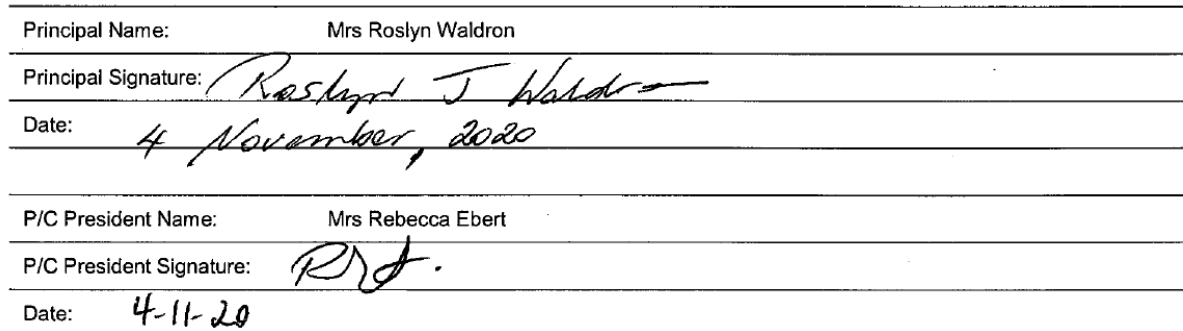 Principal Name: Mrs Roslyn Waldron
Principal Signature: Roslyn J Waldron
Date: 4 November, 2020
P/C President Name: Mrs Rebecca Ebert
P/C President Signature:
Date: 4-11-20